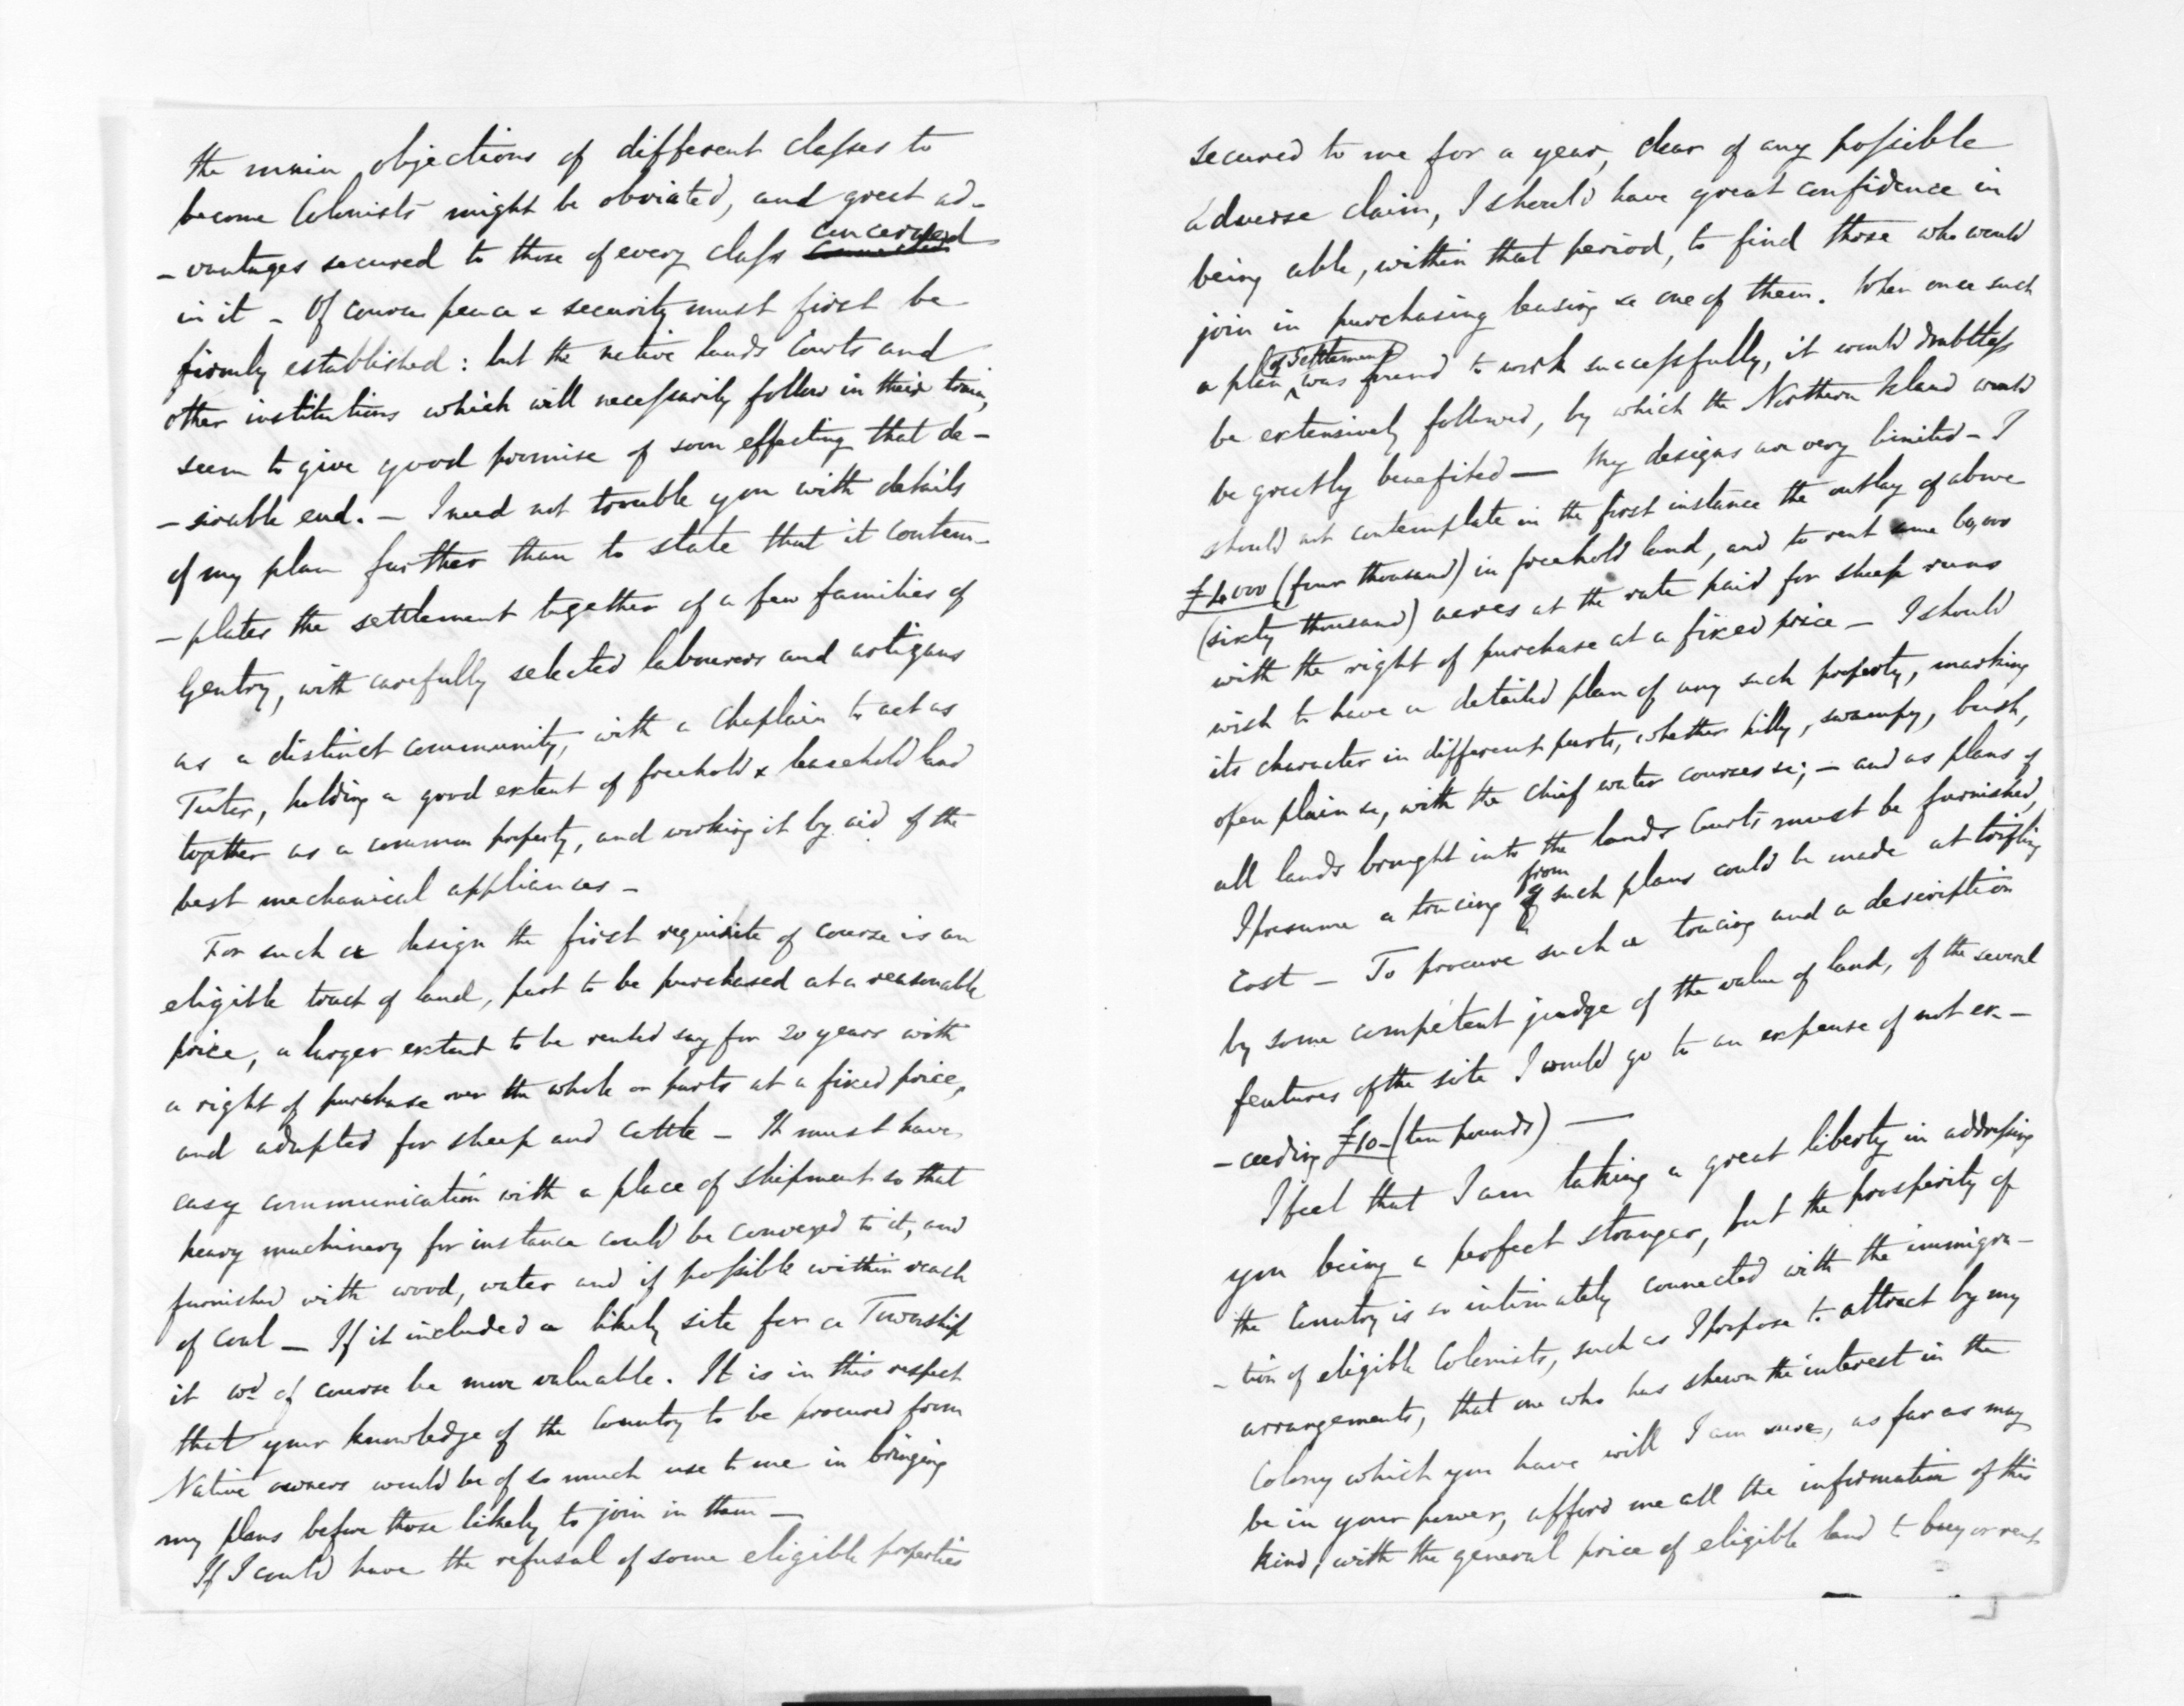 the main objections of different classes to
become Colonists might be obviated, and great ad-
-vantages secured to those of every class concerned
in it - Of course peace & security must first be
firmly established: but the native lands Courts and
other institutions which will necessarily follow in their train,
seem to give good promise of soon effecting that de-
-sirable end. - I need not trouble you with details
of my plan further than to state that it contem-
-plates the settlement together of a few families of
Gentry, with carefully selected labourers and artizans
as a distinct community, with a Chaplain to act as
Tutor, holding a good extent of freehold & leasehold land
together as a common property, and working it by aid of the
best mechanical appliances -
For such a design the first requisite of course is an
eligible tract of land, part to be purchased at a reasonable
price, a larger extent to be rented say for 20 years with
a right of purchase over the whole or parts at a fixed price,
and adapted for sheep and cattle - It must have
easy communication with a place of shipment so that
heavy machinery for instance could be conveyed to it, and
furnished with wood, water and if possible within reach
of coal - If it included a likely site for a Township
it wd of course be more valuable. It is in this respect
that your knowledge of the Country to be procured from
Native owners would be of so much use to me in bringing
my plans before those likely to join in them -
If I could have the refusal of some eligible properties
secured to me for a year, clear of any possible
adverse claim, I should have great confidence in
being able, within that period, to find those who would
join in purchasing leasing &c one of them. When once such
a plan of Settlement was found to work successfully, it would doubtless
be extensively followed, by which the Northern Island would
be greatly benefited - My designs are very limited - I
should not contemplate in the first instance the outlay of above
£4000 (four thousand) in freehold land, and to rent some 60,000
(sixty thousand) acres at the rate paid for sheep runs
with the right of purchase at a fixed price - I should
wish to have a detailed plan of any such property, marking
its character in different parts, whether hilly, swampy, bush,
open plain &c, with the chief water courses &c; - and as plans of
all lands brought into the lands Courts must be furnished,
I presume a tracing from such plans could be made at trifling
Cost - To procure such a tracing and a description
by some competent judge of the value of land, of the several
features of the site I would go to an expense of not ex-
-ceeding £10 - (ten pounds) -
I feel that I am taking a great liberty in addressing
you being a perfect stranger, but the prosperity of
the Country is so intimately connected with the immigra-
-tion of eligible Colonists, such as I propose to attract by my
arrangements, that one who has shewn the interest in the
Colony which you have will I am sure, as far as may
be in your power, afford me all the information of this
kind, with the general price of eligible land to buy or rent